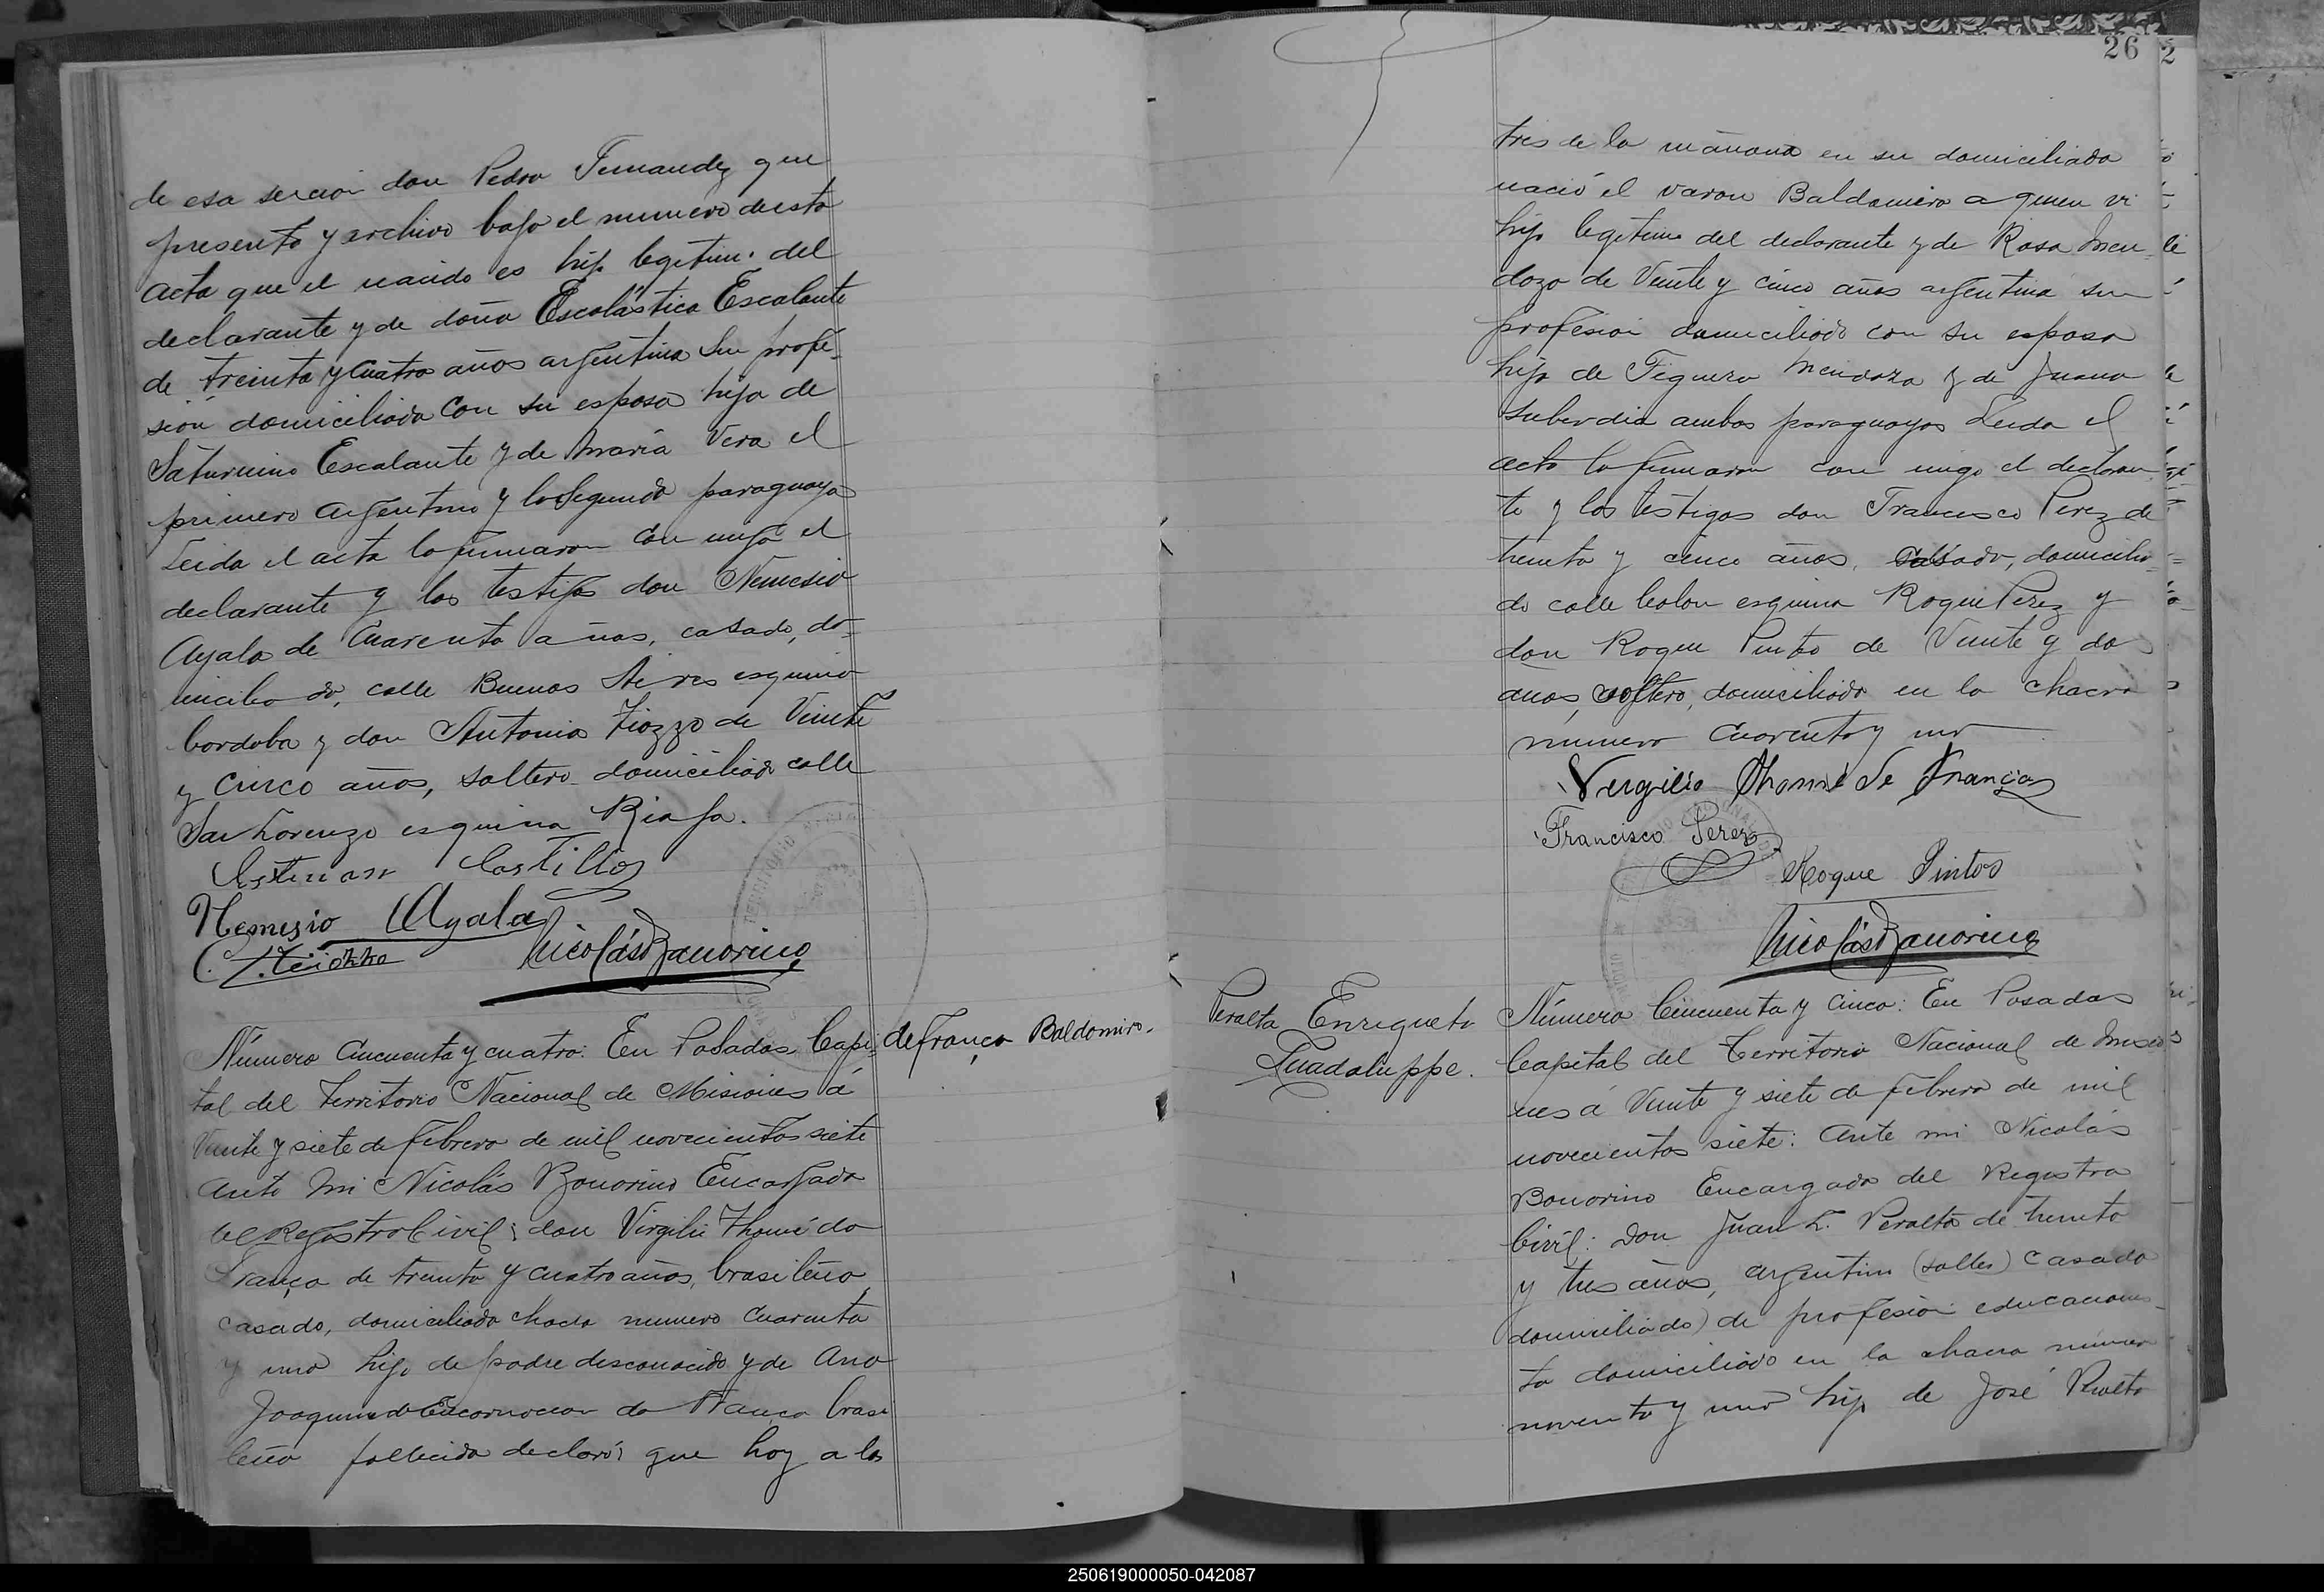 de esa sección don Pedro Fernandez que
presento y archivo bajo el numero de esta
acta que el nacido es hijo legitimo del
declarante y de doña Escolástica Escalante
de treinta y cuatro años argentina sin profe-
sión domiciliada con su esposo hija de
Saturnino Escalante y de María Vera el
primero argentino y la segunda paraguaya
Leida el acta la firmaron con migo el
declarante y los testigos don Nemesio
Ayala de cuarenta años, casado, do-
miciliado, calle Buenos Aires esquina
Cordoba y don Antonio Tiozzo de Veinte
y cinco años, soltero domiciliado calle
San Lorenzo esquina Rioja.
Castillo
Nemesio Ayala
Nicolás Bonorino
Número Cincuenta y cuatro: En Posadas, Capi- de França Baldomiro.
tal del Territorio Nacional de Misiones á
Veinte y siete de febrero de mil novecientos siete
Ante mi Nicolás Bonorino Encargado
del Registro Civil; don Virgilio Thomé da
França de treinta y cuatro años, brasileño
casado, domiciliado chacra numero cuarenta
y uno hijo de padre desconocido y de Ana
Joaquina de Encarnacion da França brasi
leña fallecida declaró: que hoy a las
26
tres de la mañana en su domiciliado
nació el varon Baldomiro a quien vi
hijo legitimo del declarante y de Rosa Men-
doza de Veinte y cinco años argentina sin
profesion domiciliada con su esposo
hija de Figuera Mendoza y de Juana
ambos paraguayos Leida el
acta la firmaron con migo el declaran-
te y los testigos don Francisco Perez de
treinta y cinco años, casado, domicilia-
do calle Colon esquina Roque Perez y
don Roque Pinto de Veinte y dos
años, soltero, domiciliado en la chacra
numero cuarenta y uno
Virgilio Thomé de França
Francisco Perez
Roque Pintos
Nicolás Bonorino
Peralta Enriqueta
Guadaluppe.
Número Cincuenta y Cinco: En Posadas
Capital del Territorio Nacional de Misio
nes á Veinte y siete de febrero de mil
novecientos siete: Ante mi Nicolás
Bonorino Encargado del Registro
Civil: Don Juan L. Peralta de treinta
y tres años, argentino (salles) casado
domiciliado) de profesión educacionis-
ta domiciliado en la chacra numero
noventa y uno hijo de José Peralta
250619000050-042087